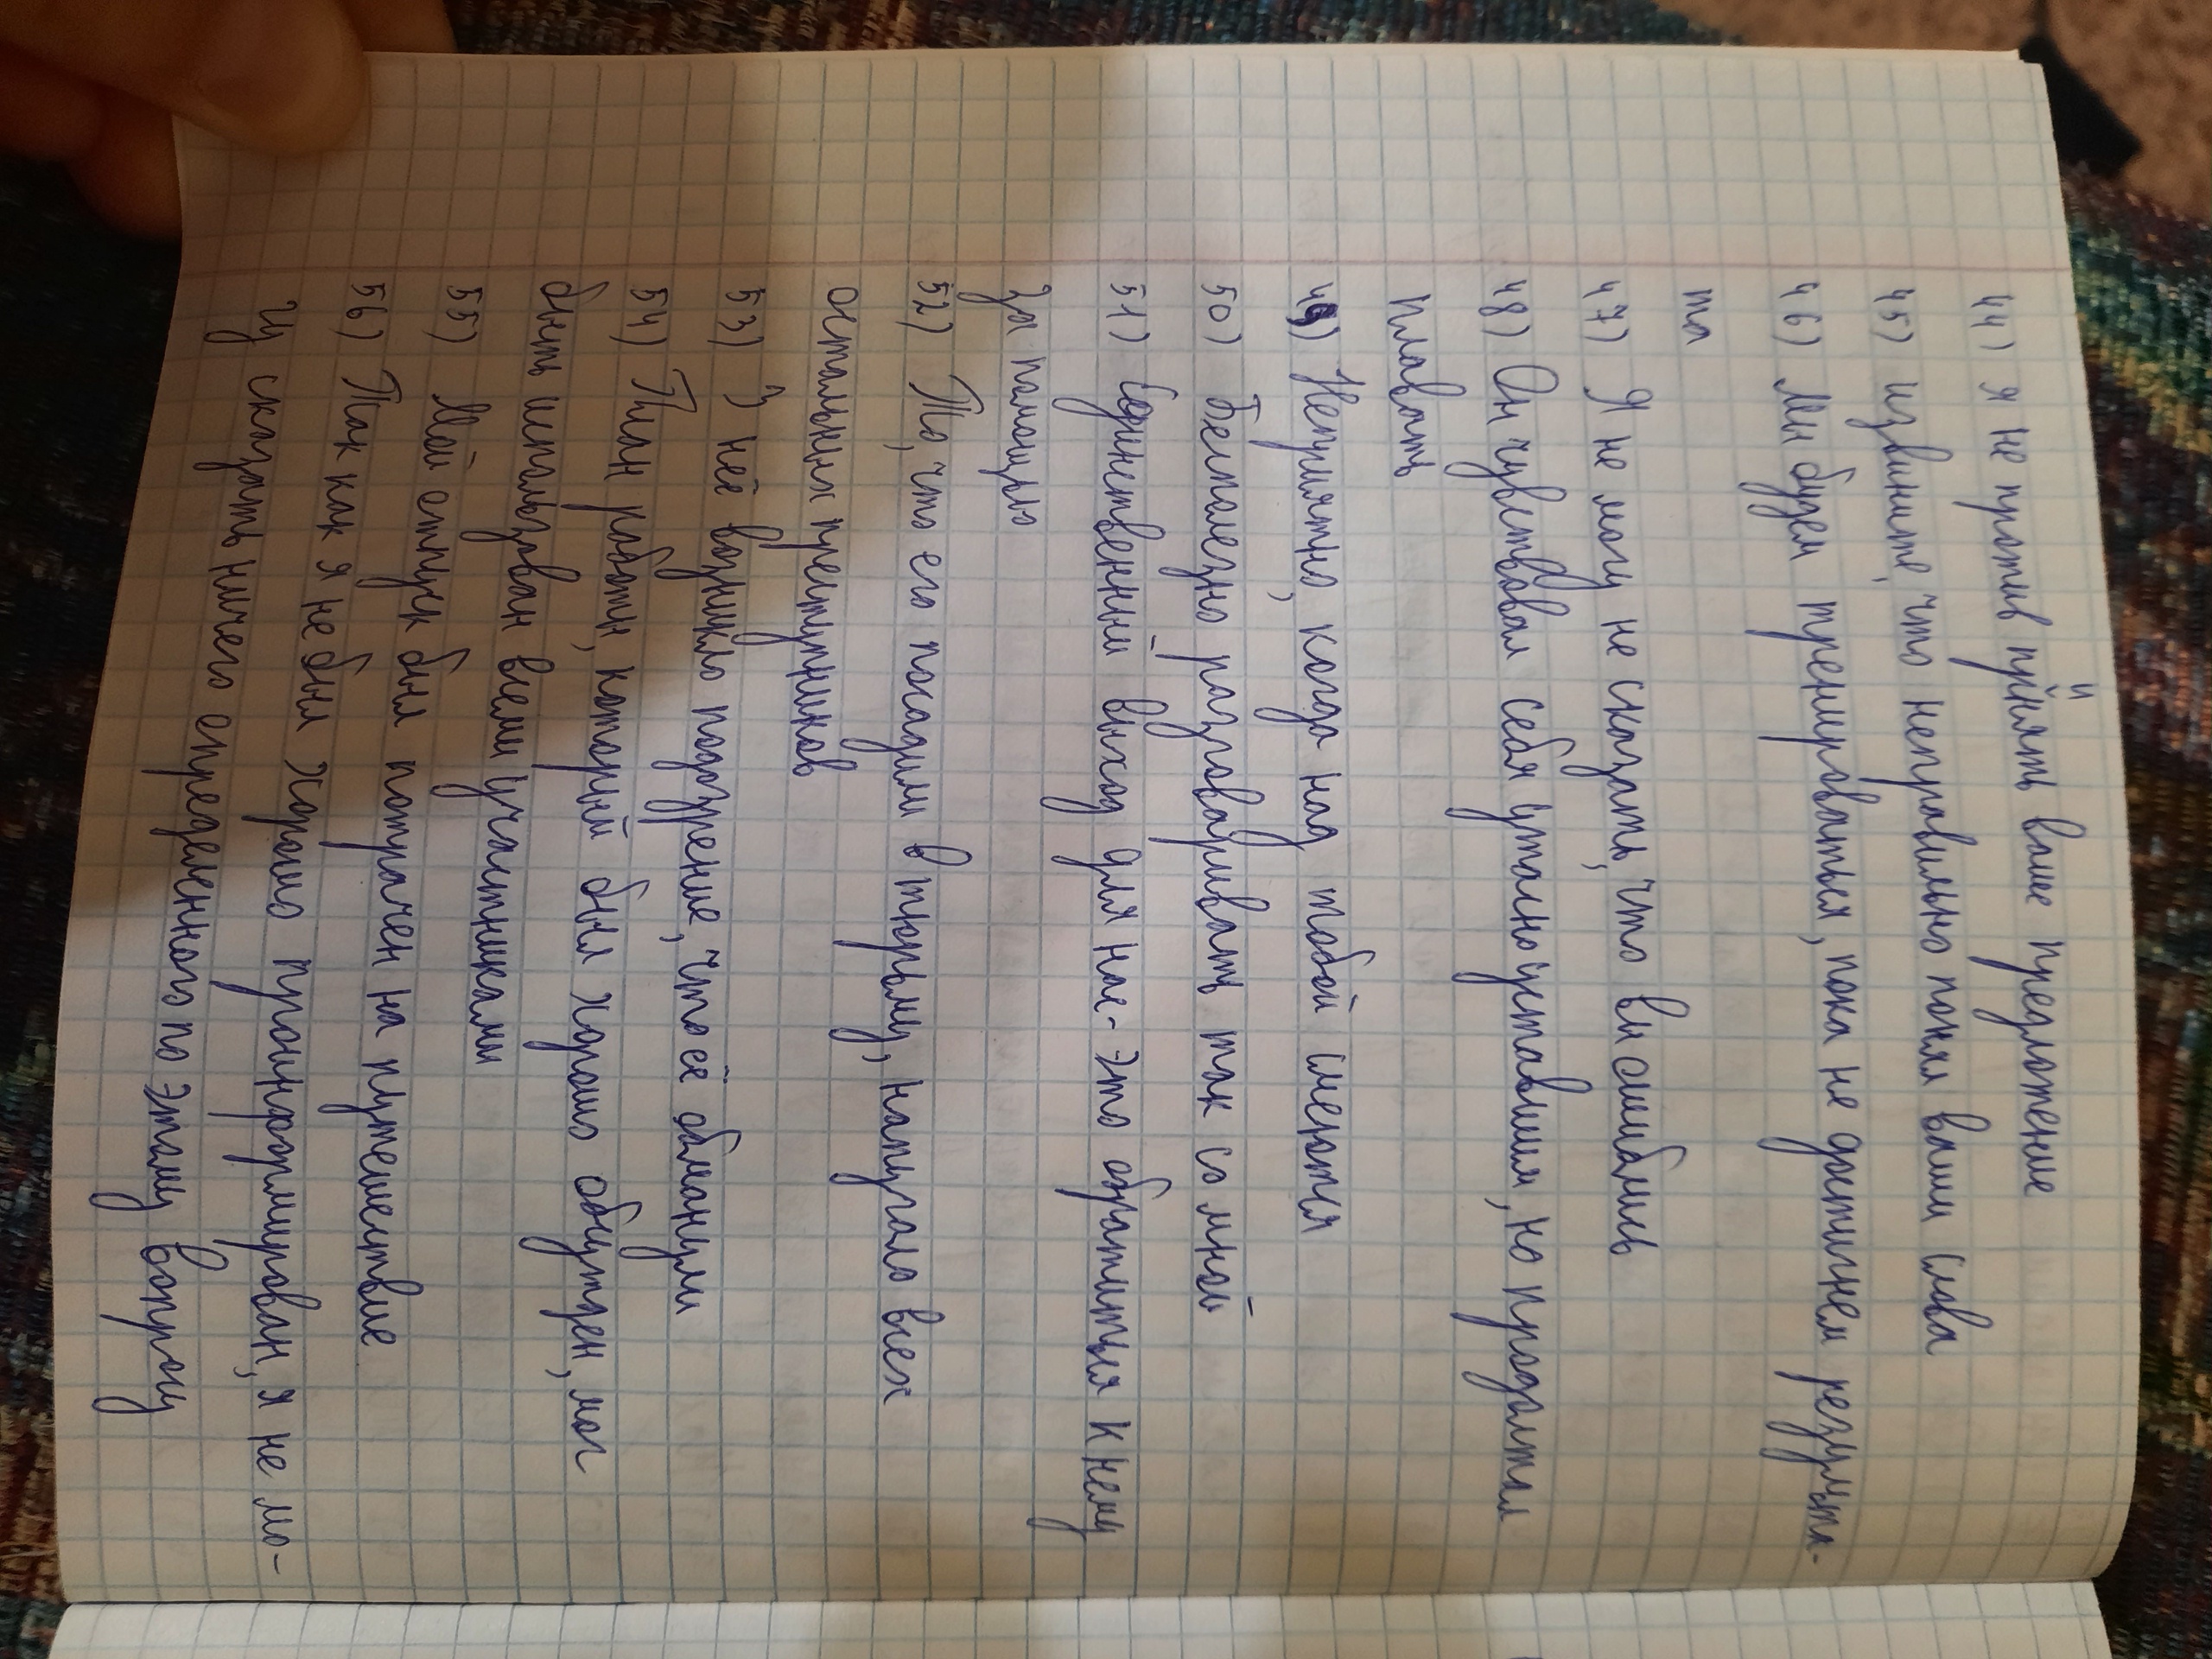 44) Я не против принять ваше предложение
45) Извините, что неправильно понял ваши слова
46) Мы будем тренироваться, пока не достигнем результа-
та
47) Я не могу не сказать, что вы ошиблись
48) Он чувствовал себя ужасно уставшим, но продолжал
плавать
49) Неприятно, когда над тобой смеются
50) Бесполезно разговаривать так со мной
51) Единственный выход для нас - это обратиться к нему
за помощью
52) То, что его посадили в тюрьму, напугало всех
остальных преступников
53) У неё возникло подозрение, что её обманули
54) План работы, который был хорошо обсужден, мог
быть использован всеми участниками
55) Мой отпуск был потрачен на путешествие
56) Так как я не был хорошо проинформирован, я не мо-
гу сказать ничего определенного по этому вопросу